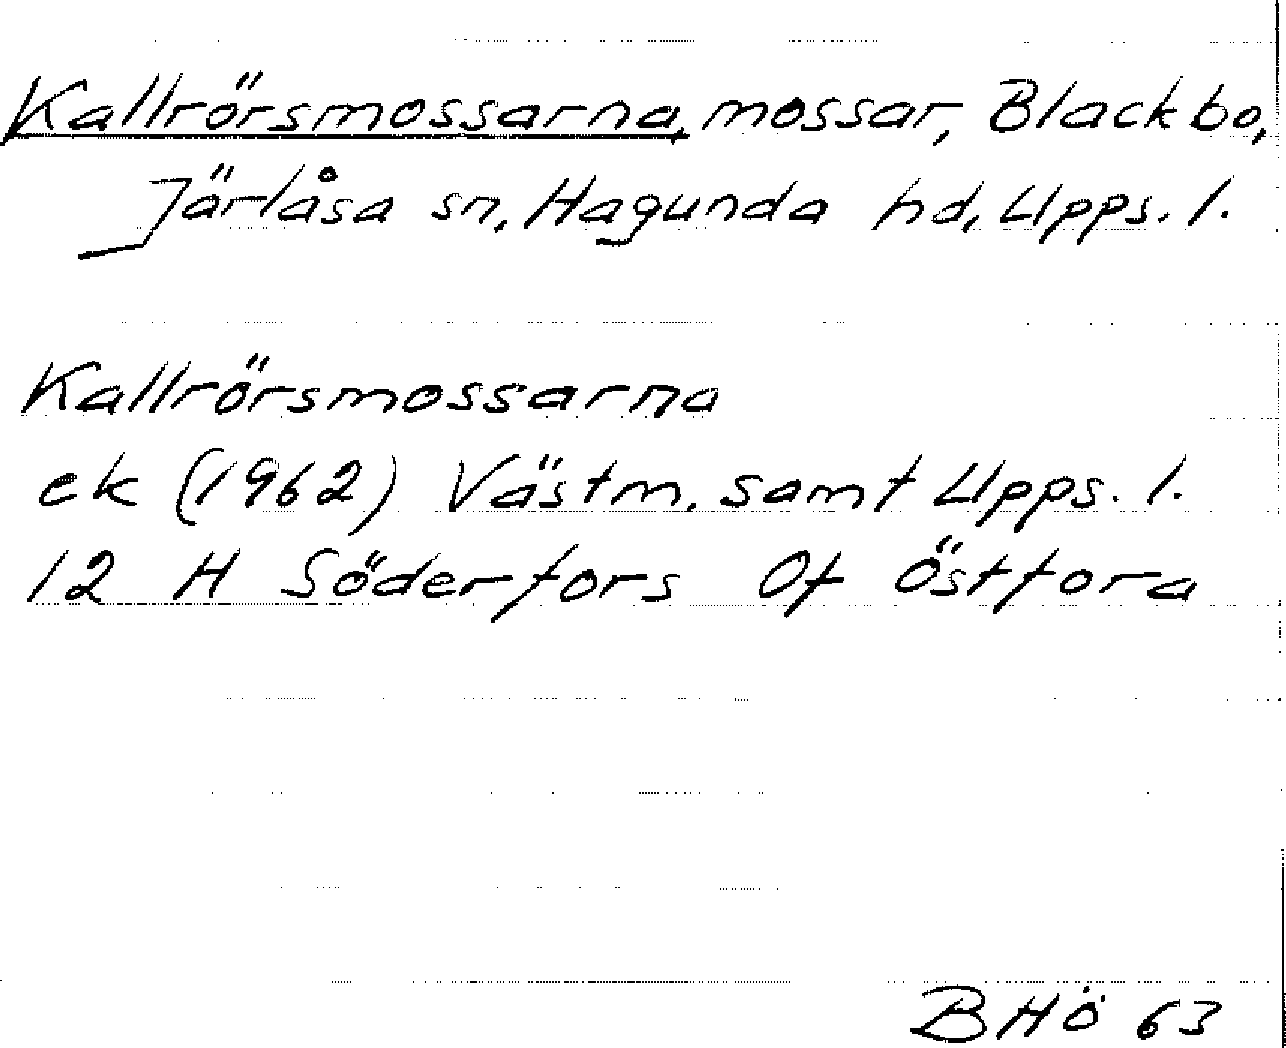 Kallrörsmossarna, mossar, Blackbo,
Järlåsa sn, Hagunda hd, Upps. l.
Kallrörsmossarna
ek (1962) Västm. samt Upps. l.
12 H Söderfors Of Östfora
BHö 63